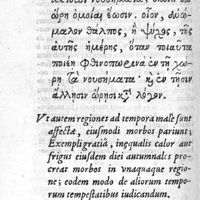 ὥρῃ ὁμοίαι ἔωσιν. οἷον, ἀνώ-
μαλον θάλπος, ἢ ψύχος τῆς
αὐτῆς ἡμέρης, ὅταν τοιαῦτα
ποιέῃ φθινοπωρινὰ ἐν τῇ χώ-
ρῃ τὰ νουσήματα· κἢν τῇσιν
ἄλλησιν ὥρῃσι κτ λόγον.
Vt autem regiones ad tempora malè sunt
affectæ, eiusmodi morbos pariunt;
Exempli gratiâ, inæqualis calor aut
frigus eiusdem diei autumnales pro-
creat morbos in vnaquaque regio-
ne; eodem modo de aliorum tempo-
rum tempestatibus iudicandum.